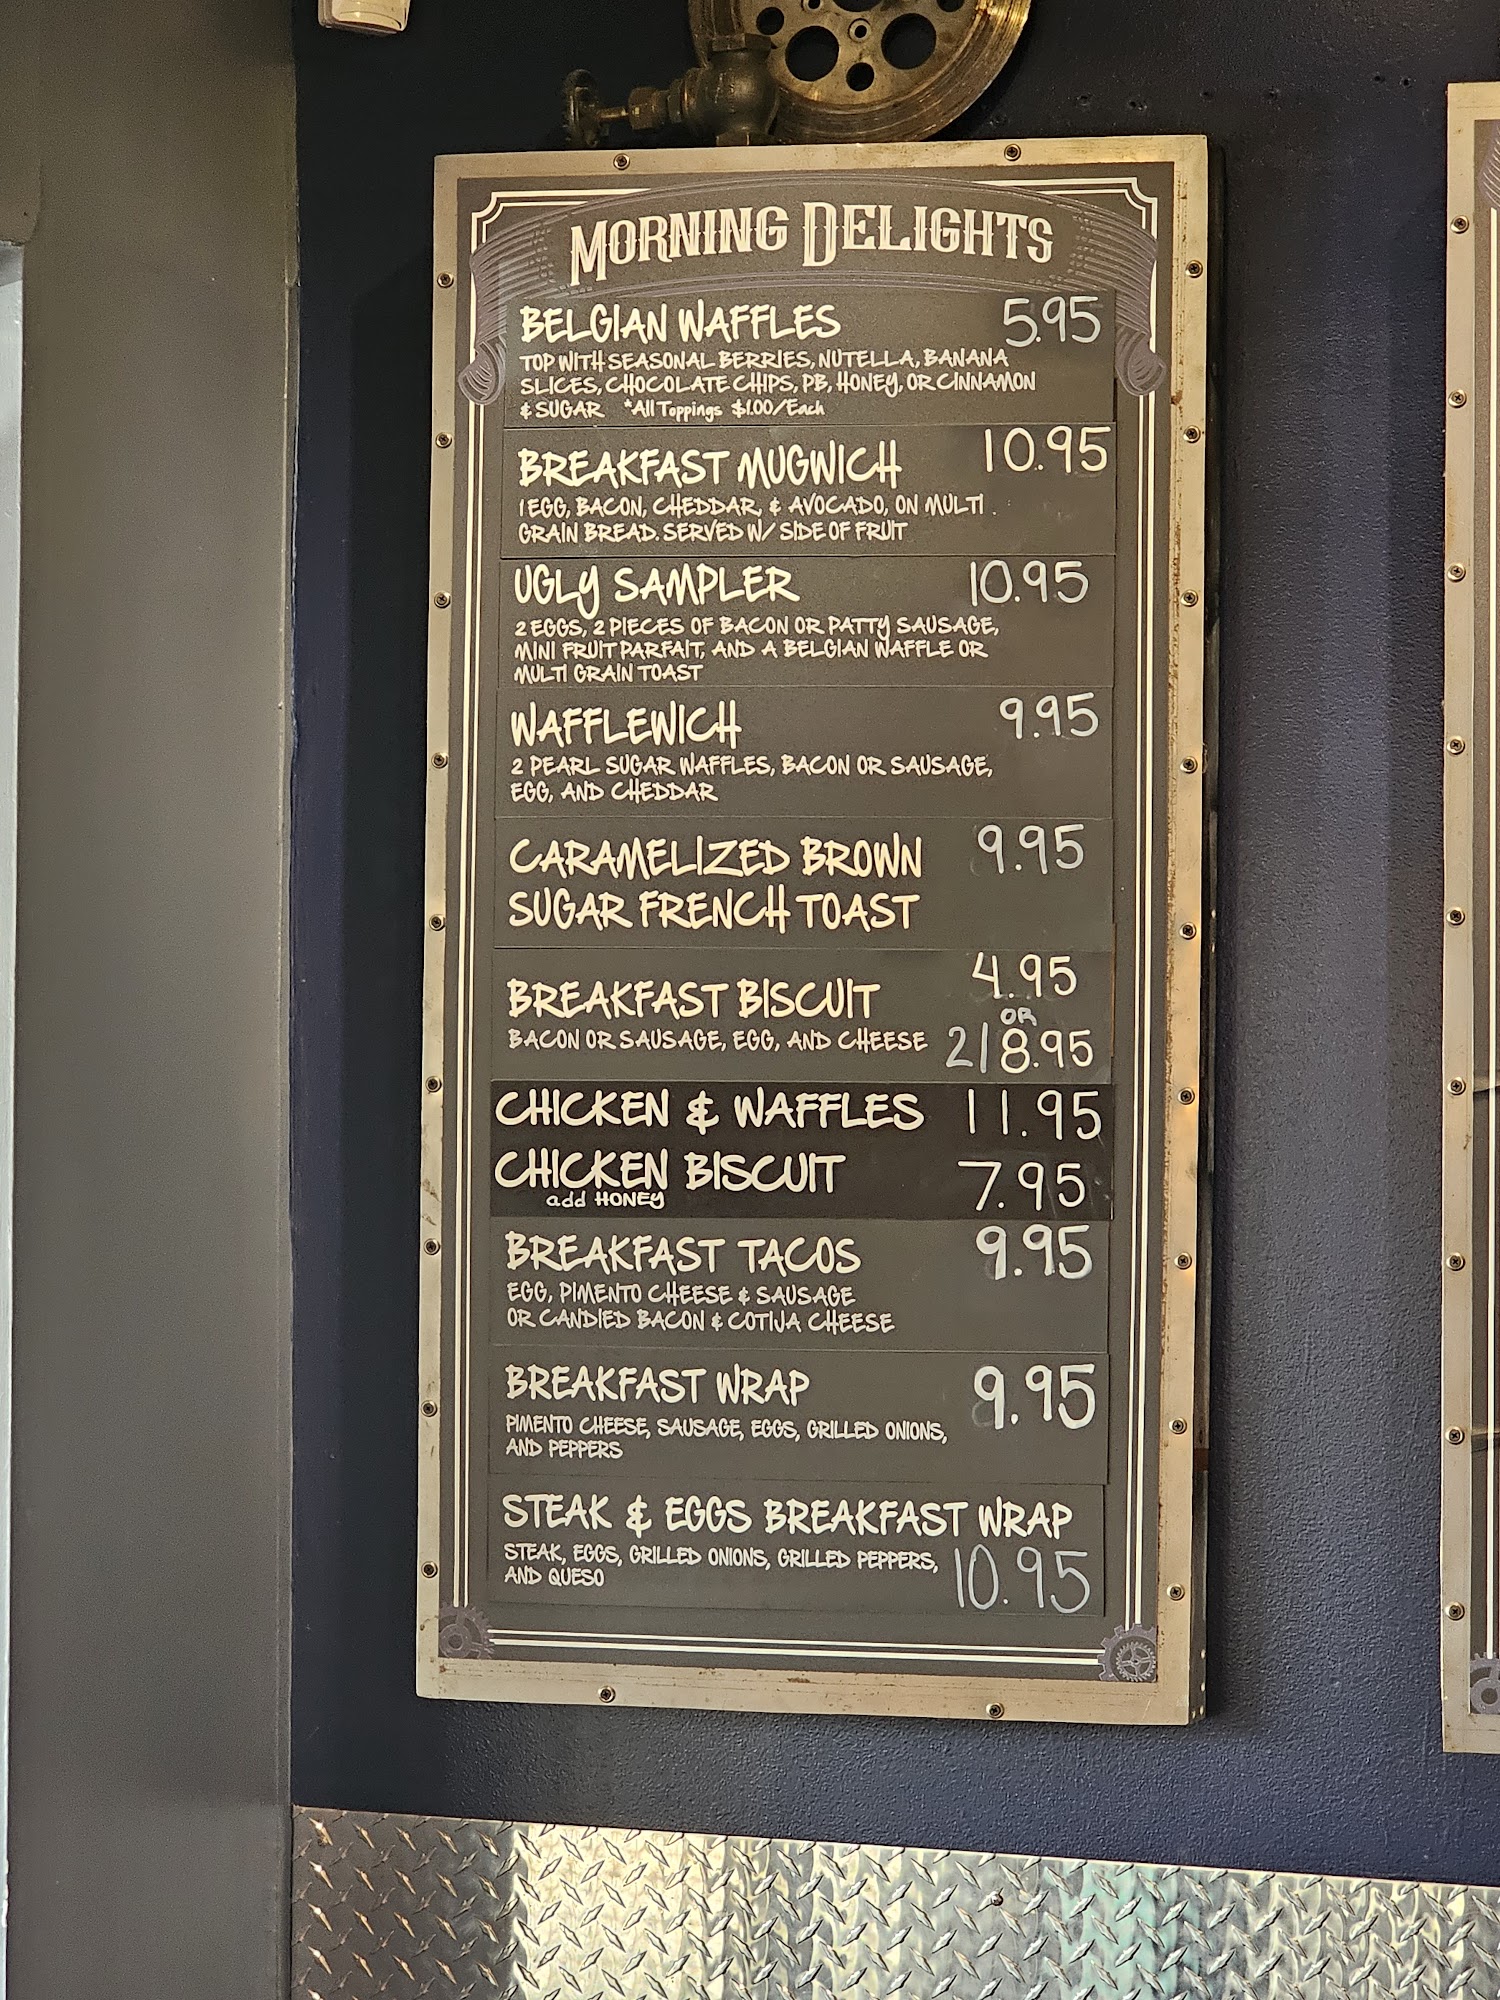 MORNING DELIGHTS
BELGIAN WAFFLES 5.95
TOP WITH SEASONAL BERRIES, NUTELLA, BANANA
SLICES, CHOCOLATE CHIPS, PB, HONEY, OR CINNAMON
& SUGAR *All Toppings $1.00/Each
BREAKFAST MUGWICH 10.95
1 EGG, BACON, CHEDDAR, & AVOCADO, ON MULTI
GRAIN BREAD. SERVED W/ SIDE OF FRUIT
UGLY SAMPLER 10.95
2 EGGS, 2 PIECES OF BACON OR PATTY SAUSAGE,
MINI FRUIT PARFAIT, AND A BELGIAN WAFFLE OR
MULTI GRAIN TOAST
WAFFLEWICH 9.95
2 PEARL SUGAR WAFFLES, BACON OR SAUSAGE,
EGG, AND CHEDDAR
CARAMELIZED BROWN 9.95
SUGAR FRENCH TOAST
BREAKFAST BISCUIT 4.95
OR
BACON OR SAUSAGE, EGG, AND CHEESE 2/8.95
CHICKEN & WAFFLES 11.95
CHICKEN BISCUIT 7.95
add HONEY
BREAKFAST TACOS 9.95
EGG, PIMENTO CHEESE & SAUSAGE
OR CANDIED BACON & COTIJA CHEESE
BREAKFAST WRAP 9.95
PIMENTO CHEESE, SAUSAGE, EGGS, GRILLED ONIONS,
AND PEPPERS
STEAK & EGGS BREAKFAST WRAP
STEAK, EGGS, GRILLED ONIONS, GRILLED PEPPERS, 10.95
AND QUESO